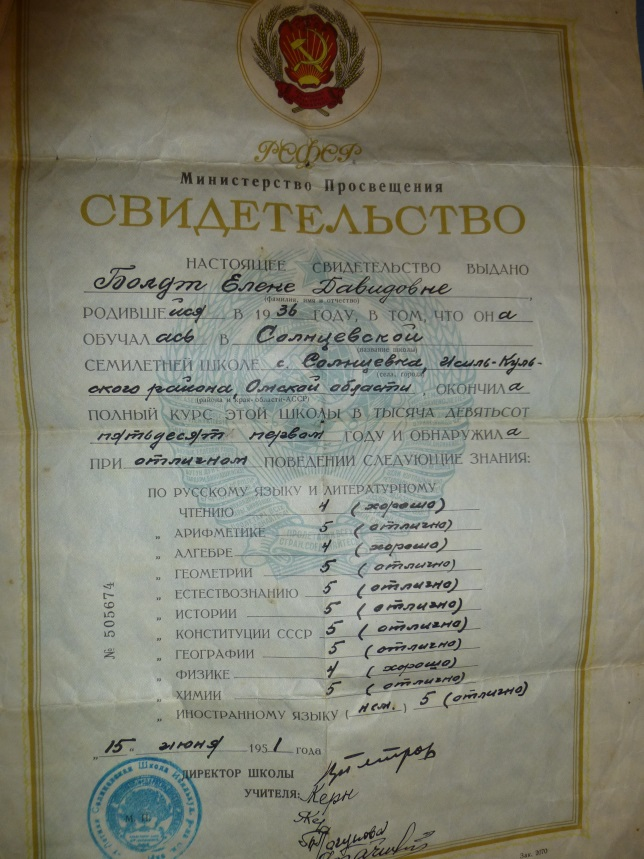 РСФСР
Министерство Просвещения
СВИДЕТЕЛЬСТВО
НАСТОЯЩЕЕ СВИДЕТЕЛЬСТВО ВЫДАНО
Болдт Елене Давидовне
(фамилия, имя и отчество)
РОДИВШЕЙСЯ В 1936 ГОДУ, В ТОМ, ЧТО ОНА
ОБУЧАЛАСЬ В Солнцевской
(название школы)
СЕМИЛЕТНЕЙ ШКОЛЕ с. Солнцевка, Исиль-Куль-
(села, города)
ского района Омской области, ОКОНЧИЛА
(района и края-области-АССР)
ПОЛНЫЙ КУРС ЭТОЙ ШКОЛЫ В ТЫСЯЧА ДЕВЯТЬСОТ
пятьдесят первом ГОДУ И ОБНАРУЖИЛА
ПРИ отличном ПОВЕДЕНИИ СЛЕДУЮЩИЕ ЗНАНИЯ:
ПО РУССКОМУ ЯЗЫКУ И ЛИТЕРАТУРНОМУ
ЧТЕНИЮ 4 (хорошо)
„ АРИФМЕТИКЕ 5 (отлично)
„ АЛГЕБРЕ 4 (хорошо)
„ ГЕОМЕТРИИ 5 (отлично)
„ ЕСТЕСТВОЗНАНИЮ 5 (отлично)
„ ИСТОРИИ 5 (отлично)
„ КОНСТИТУЦИИ СССР 5 (отлично)
„ ГЕОГРАФИИ 5 (отлично)
„ ФИЗИКЕ 4 (хорошо)
„ ХИМИИ 5 (отлично)
„ ИНОСТРАННОМУ ЯЗЫКУ (нем.) 5 (отлично)
№ 505674
„15„ июня 1951 года
ДИРЕКТОР ШКОЛЫ
УЧИТЕЛЯ: Керн
М. П.
Зак. 2070